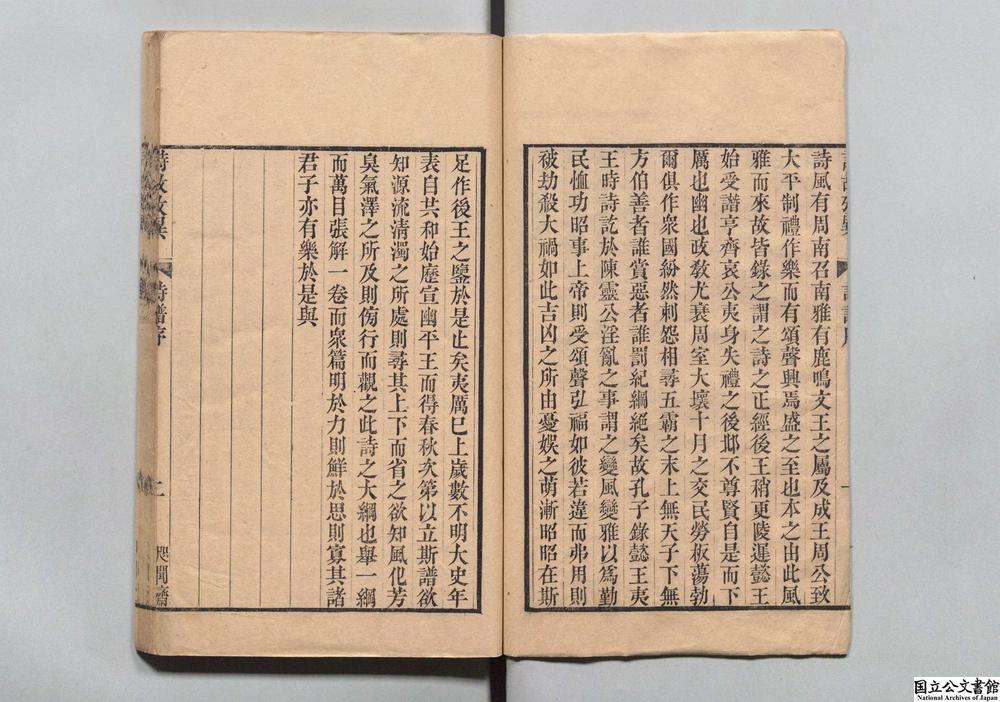 詩風有周南召南雅有鹿鳴文王之屬及成王周公致
大平制禮作樂而有頌聲興焉盛之至也本之由此風
雅而來故皆錄之謂之詩之正經後王稍更陵遲懿王
始受譖亨齊哀公夷身失禮之後邶不尊賢自是而下
厲也幽也政敎尤衰周室大壞十月之交民勞板蕩勃
爾俱作衆國紛然刺怨相尋五霸之末上無天子下無
方伯善者誰賞惡者誰罰紀綱絕矣故孔子錄懿王夷
王時詩訖於陳靈公淫亂之事謂之變風變雅以爲勤
民恤功昭事上帝則受頌聲弘福如彼若違而弗用則
被劫殺大禍如此吉凶之所由憂娛之萌漸昭昭在斯
足作後王之鑒於是止矣夷厲巳上歲數不明大史年
表自共和始歷宣幽平王而得春秋次第以立斯譜欲
知源流清濁之所處則尋其上下而省之欲知風化芳
臭氣澤之所及則傍行而觀之此詩之大綱也舉一綱
而萬目張解一卷而衆篇明於力則鮮於思則寡其諸
君子亦有樂於是與
詩譜序
二
国立公文書館
National Archives of Japan